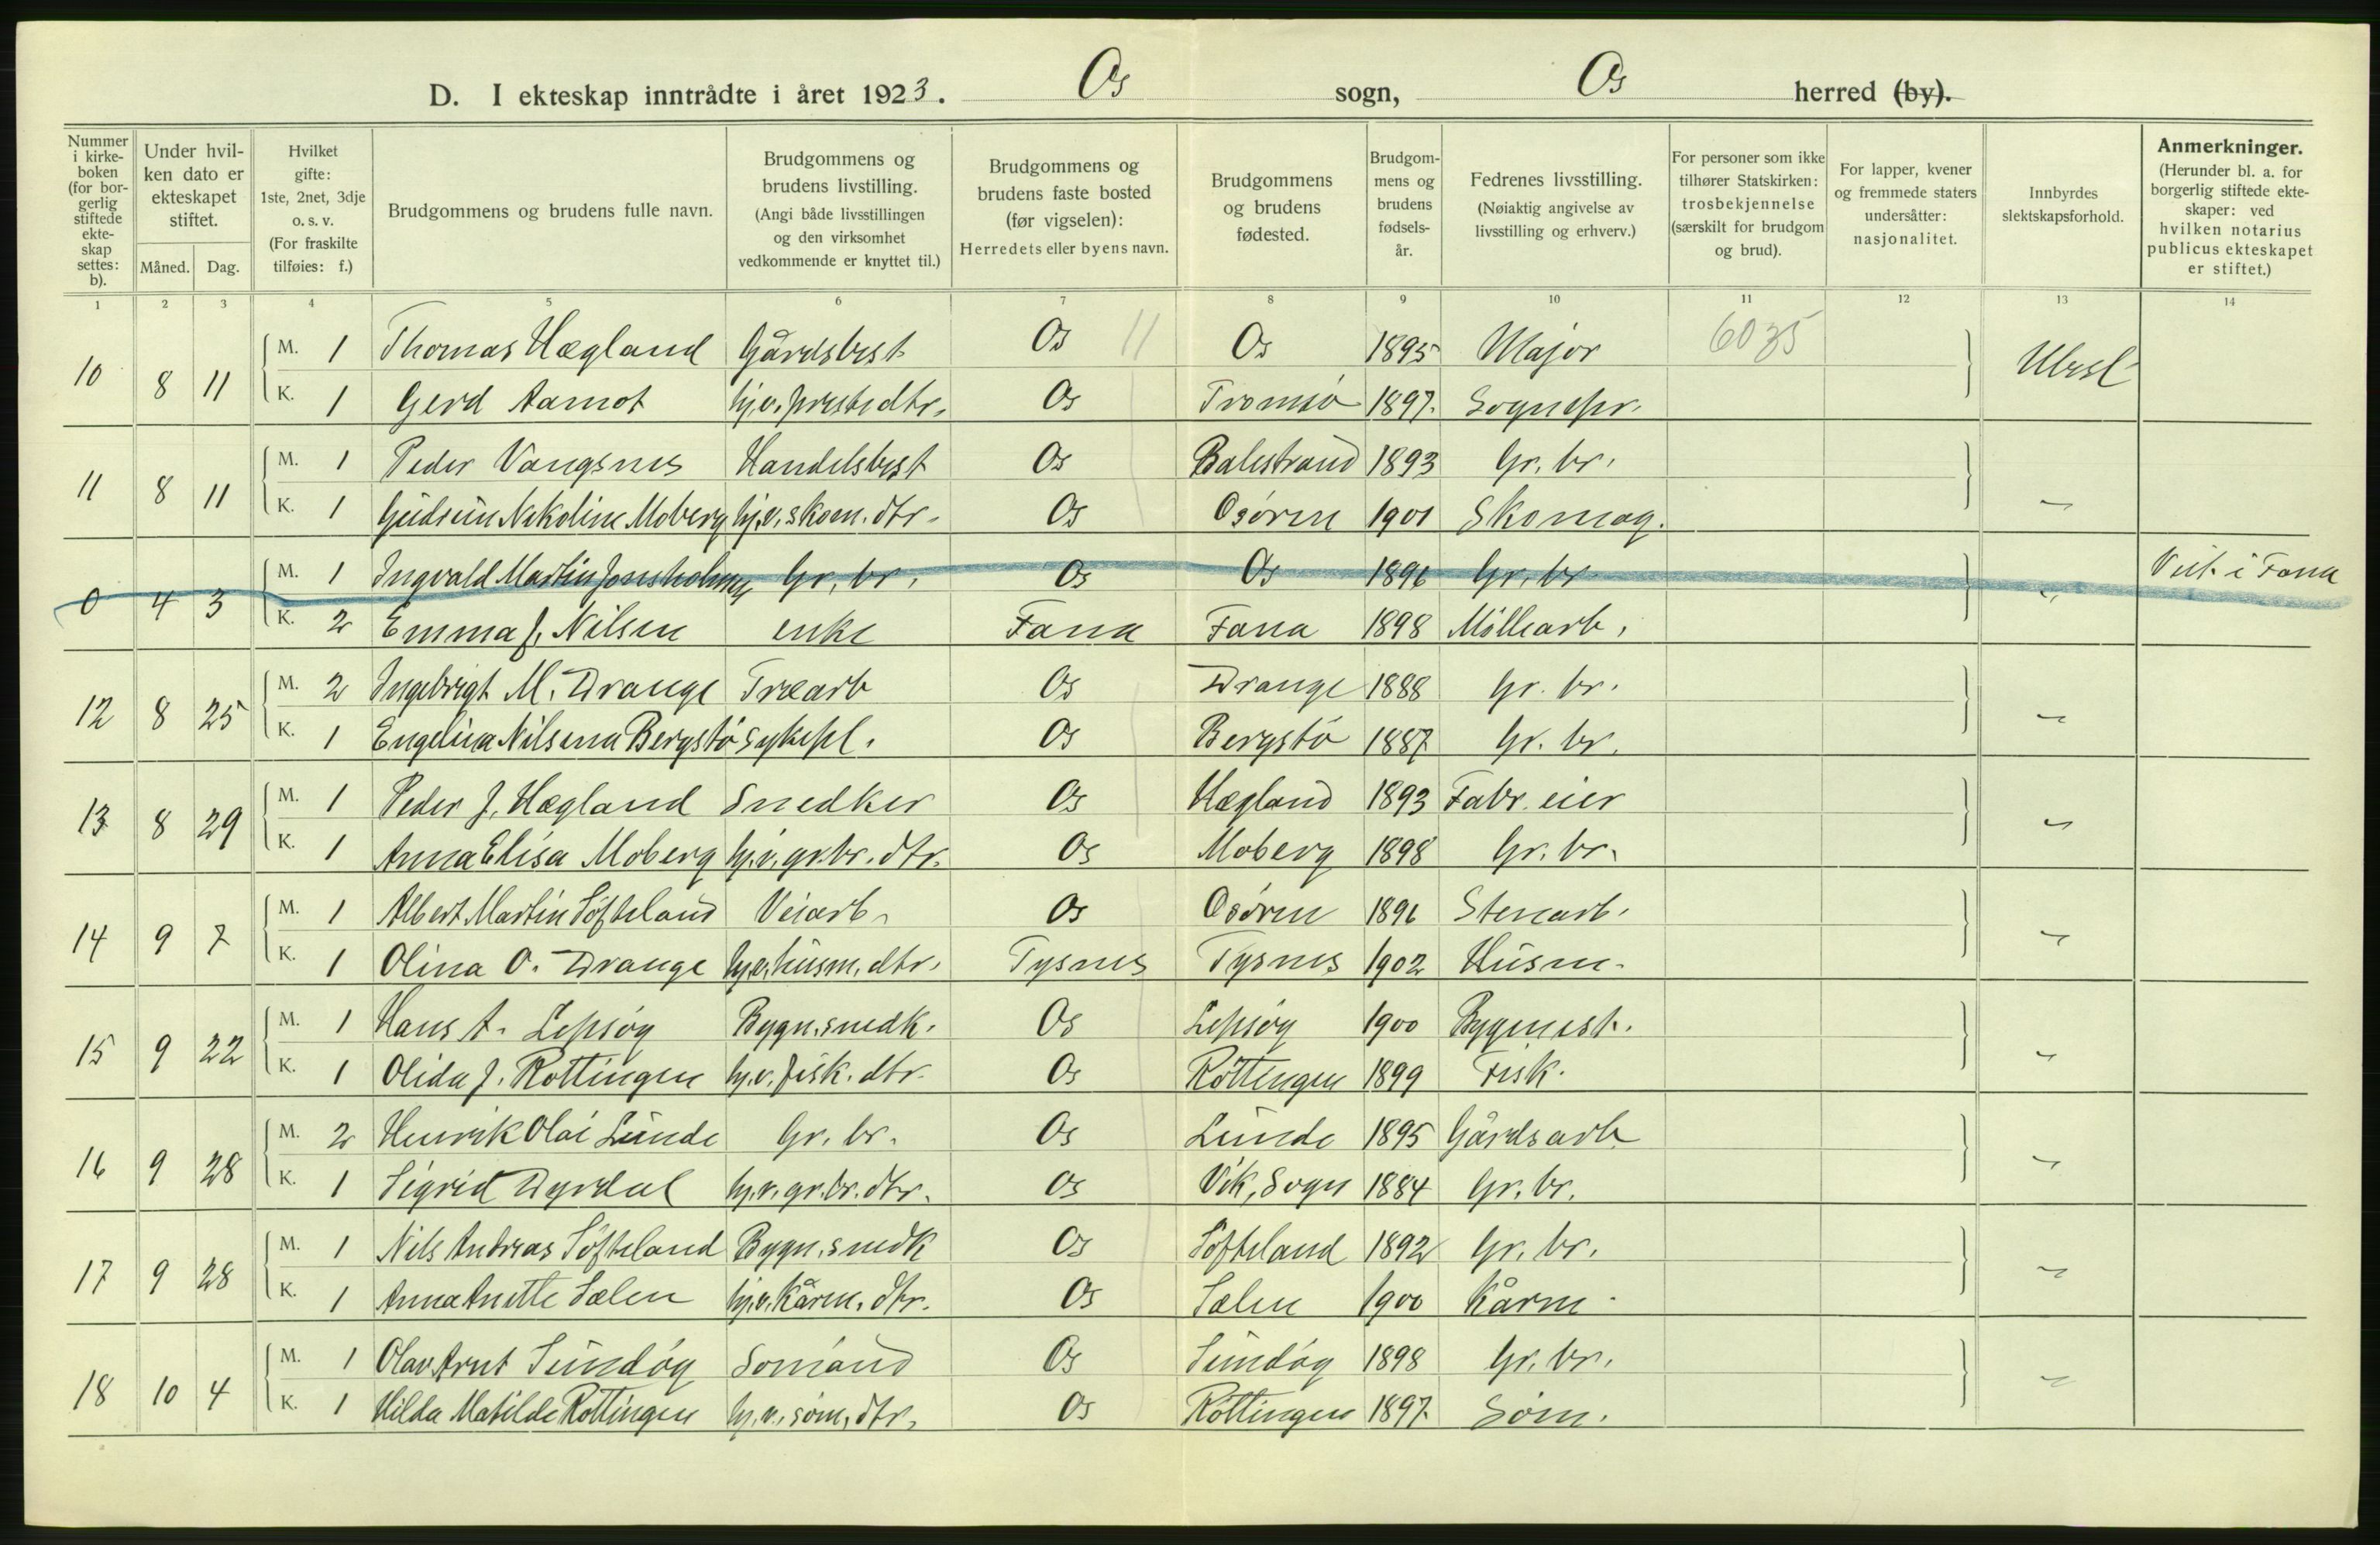 D. I ekteskap inntrådte i året 1923. Os sogn, Os herred (by).
Nummer i kirkeboken (for borgerlig stiftede ekteskap settes: b).
Under hvilken dato er ekteskapet stiftet.
Måned. Dag.
Hvilket gifte: 1ste, 2net, 3dje o. s. v. (For fraskilte tilføies: f.)
Brudgommens og brudens fulle navn.
Brudgommens og brudens livstilling. (Angi både livsstillingen og den virksomhet vedkommende er knyttet til.)
Brudgommens og brudens faste bosted (før vigselen): Herredets eller byens navn.
Brudgommens og brudens fødested.
Brudgommens og brudens fødselsår.
Fedrenes livsstilling. (Nøiaktig angivelse av livsstilling og erhverv.)
For personer som ikke tilhører Statskirken: trosbekjennelse (særskilt for brudgom og brud).
For lapper, kvener og fremmede staters undersåtter: nasjonalitet.
Innbyrdes slektskapsforhold.
Anmerkninger. (Herunder bl. a. for borgerlig stiftede ekteskaper: ved hvilken notarius publicus ekteskapet er stiftet.)
1 2 3 4 5 6 7 8 9 10 11 12 13 14
10 8 11 M. 1 Thomas Hægland Gårdsbest Os 11 Os 1895 Major 6035 Ubesl
K. 1 Gerd Aamot hj.v. prestedtr. Os Tromsø 1897. Sognepr.
11 8 11 M. 1 Peder Vangsnes Handelsbest Os Balestrand 1893 Gr. br. 〃
K. 1 Gudrun Nikoline Moberg hj.v. skom. dtr. Os Osøren 1901 Skomag.
0 4 3 M. 1 Ingvald Martin Jonsholmen Gr. br. Os Os 1896 Gr. br. 〃 Viet i Fana
K. 2 Emma J. Nilsen enke Fana Fana 1898 Møllearb.
12 8 25 M. 2 Ingebrigt M. Drange Træarb Os Drange 1888 Gr. br. 〃
K. 1 Engelina Nilsena Bergstø Sykepl. Os Bergstø 1887 Gr. br.
13 8 29 M. 1 Peder J. Hægland Snedker Os Hægland 1893 Fabr. eier 〃
K. 1 Anna Elisa Moberg hj.v. gr.br. dtr. Os Moberg 1898 Gr. br.
14 9 7 M. 1 Albert Martin Søfteland Veiarb. Os Osøren 1896 Stenarb. 〃
K. 1 Olina O. Drange hj.v. husm. dtr. Tysnes Tysnes 1902 Husm.
15 9 22 M. 1 Hans A. Lepsøy Bygn. snedk. Os Lepsøy 1900 Bygmest. 〃
K. 1 Olida J. Røttingen hj.v. fisk. dtr. Os Røttingen 1899 Fisk.
16 9 28 M. 2 Henrik Olai Lunde Gr. br. Os Lunde 1895 Gårdsarb 〃
K. 1 Sigrid Dyrdal hj.v. gr.br. dtr. Os Vik, Sogn 1884 Gr. br.
17 9 28 M. 1 Nils Andreas Søfteland Bygn. snedk Os Søfteland 1892 Gr. br. 〃
K. 1 Anna Anette Sælen hj.v. kårm. dtr. Os Sælen 1900 Kårm.
18 10 4 M. 1 Olav Arnt Sundøy Sømand Os Sundøy 1898 Gr. br. 〃
K. 1 Hilda Matilde Røttingen hj.v. søm. dtr. Os Røttingen 1897. Søm.